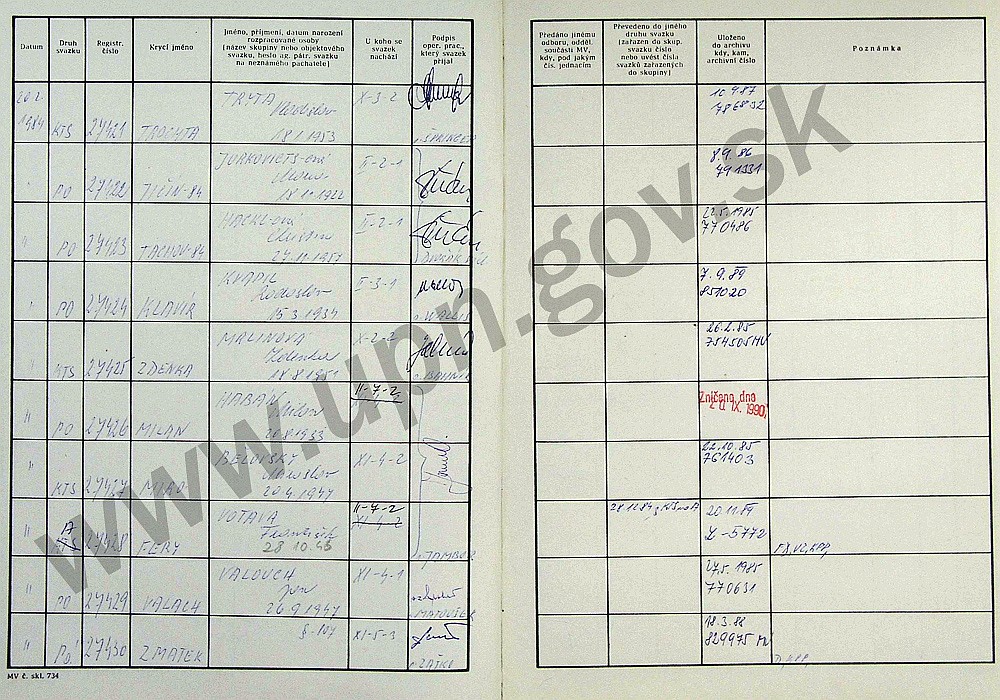 Datum
Druh
svazku
Registr.
číslo
Krycí jméno
Jméno, příjmení, datum narození
rozpracované osoby
(název skupiny nebo objektového
svazku, heslo ag. pátr. svazku
na neznámého pachatele)
U koho se
svazek
nachází
Podpis
oper. prac.,
který svazek
přijal
Předáno jinému
odboru, odděl.
součásti MV,
kdy, pod jakým
čís. jednacím
Převedeno do jiného
druhu svazku
(zařazen do skup.
svazku číslo
nebo uvést čísla
svazků zařazených
do skupiny)
Uloženo
do archivu
kdy, kam,
archivní číslo
Poznámka
1984 KTS 27421 TROCHTA
TRYTA
18.1.1953
X-3-2
786832
" PO 27422 JIČÍN-84
18.10.1922
II-2-1
8.9.86
791331
" PO 27423 TACHOV-84
HACKL-ová
27.10.1951
II-2-1
22.5.1985
770486
" PO 27424 KLAVÍR
KVAPIL
15.3.1934
II-3-1
7.9.89
851020
" KTS 27425 ZDENKA
MALINOVÁ
Zdenka
18.8.1951
X-2-2
26.2.85
754505 MV
" PO 27426 MILAN
HABAN
Milan
20.8.1933
II-7-2
Zničeno dne
IX. 1990
" KTS 27427 MIRO
BELOVSKÝ
Miroslav
20.4.1947
XI-4-2
22.10.85
761403
" A 27428 FERY
VOTAVA
František
28.10.43
II-7-2
XI-4-2
JAMBOR
20.11.89
Z-5772
" PO 27429 VALACH
VALOUCH
Jan
26.9.1947
XI-4-1
MATOUŠEK
27.5.1985
770631
" PO 27430 ZMATEK
8-107
XI-5-3
ZAJKO
18.3.88
829975
MV č. skl. 734
www.upn.gov.sk